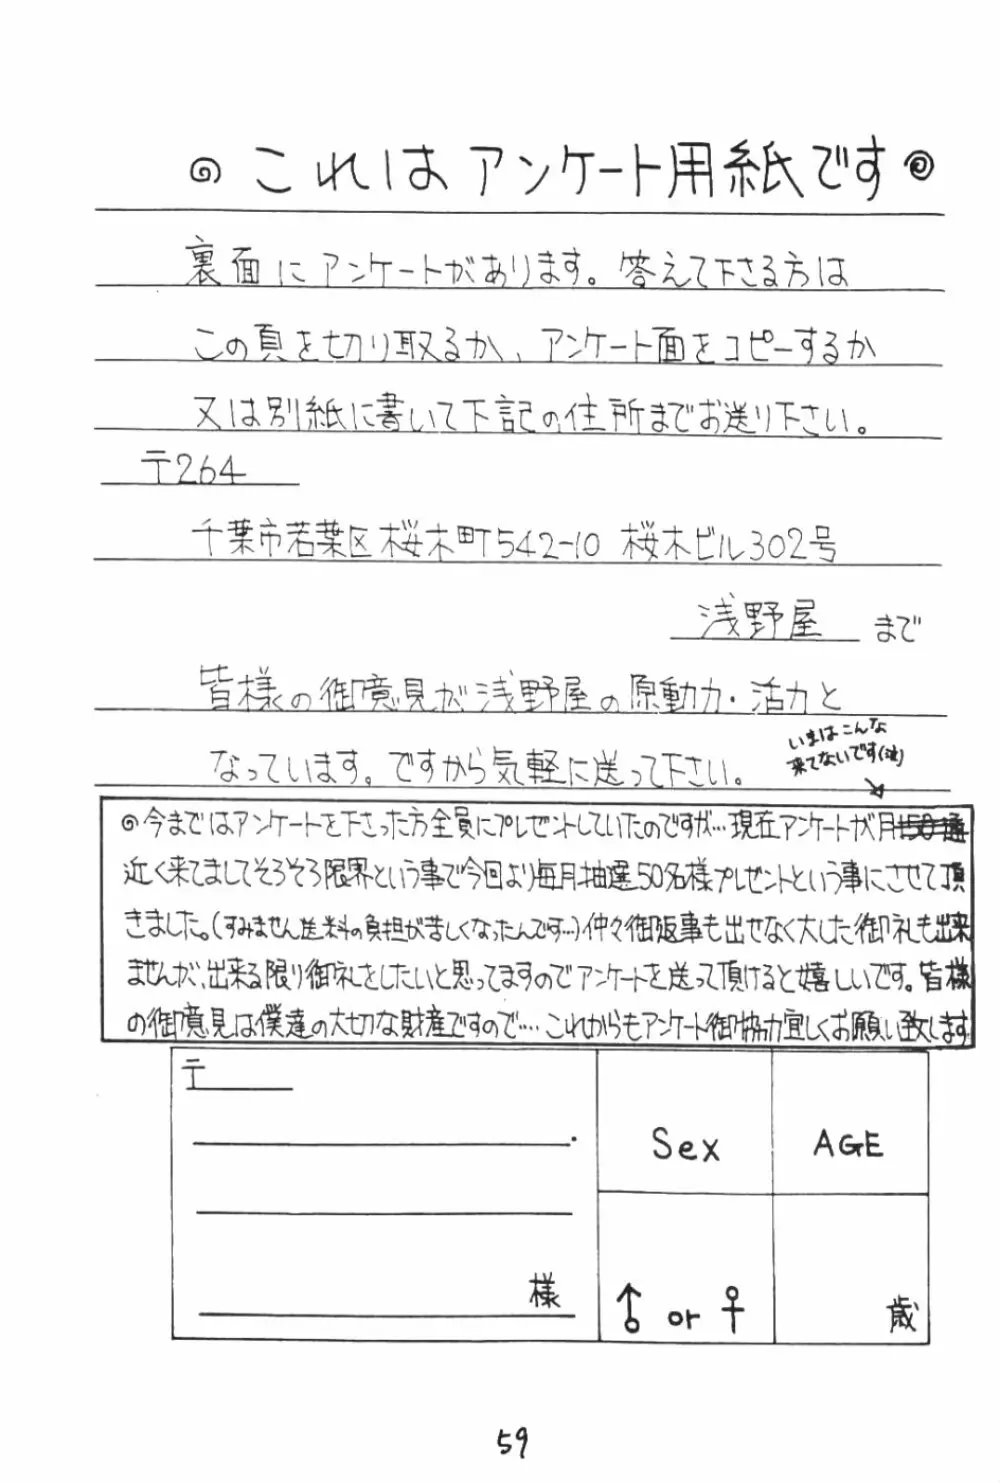 これはアンケート用紙です
裏面にアンケートがあります。答えて下さる方は
この頁を切り取るか、アンケート面をコピーするか
又は別紙に書いて下記の住所までお送り下さい。
〒264
千葉市若葉区桜木町542-10 桜木ビル302号
浅野屋 まで
皆様の御意見が浅野屋の原動力・活力と
なっています。ですから気軽に送って下さい。
いまはこんな
来てないです(泣)
◎今まではアンケートを下さった方全員にプレゼントしていたのですが…現在アンケートが月150通
近く来てましてそろそろ限界という事で今回より毎月抽選50名様プレゼントという事にさせて頂
きました。(すみません送料の負担が苦しくなったんです…)仲々御返事も出せなく大した御礼も出来
ませんが、出来る限り御礼をしたいと思ってますのでアンケートを送って頂けると嬉しいです。皆様
の御意見は僕達の大切な財産ですので…これからもアンケート御協力宜しくお願い致します
〒
様
Sex
AGE
♂ or ♀
歳
59